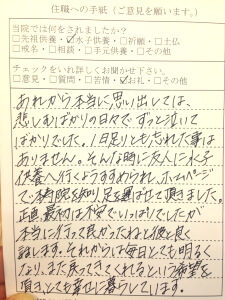 住職への手紙(ご意見を願います。)
当院では何をされましたか?
□先祖供養・☑水子供養・□祈願・□土仏
□戒名・□相談・□手元供養・□その他
チェックをいれ詳しくお聞かせ下さい。
□意見・□質問・□苦情・☑お礼・□その他
あれから本当に思い出しては、
悲しむばかりの日々でずっと泣いて
ばかりでした。1日足りとも忘れた事は
ありません。そんな時に友人に水子
供養へ行くようすすめられ、ホームページ
で当院を知り、足を運ばせて頂きました。
正直、最初は不安でいっぱいでしたが
本当に行って良かったねと彼と良く
話します。それからは毎日とても明るく
なり、また戻ってきてくれるという希望を
頂き、とても幸せに暮らしています。